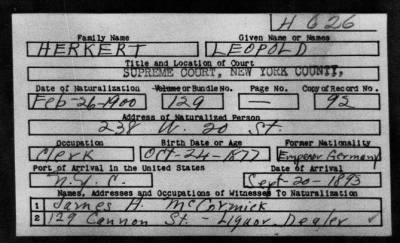 H 626
Family Name Given Name or Names
HERKERT LEOPOLD
Title and Location of Court
SUPREME COURT, NEW YORK COUNTY,
Date of Naturalization Volume or Bundle No. Page No. Copy of Record No.
Feb-26-1900 129 — 92
Address of Naturalized Person
238 W. 20 St.
Occupation Birth Date or Age Former Nationality
Clerk Oct-24-1877 Emperor Germany
Port of Arrival in the United States Date of Arrival
N.Y.C. Sept-20-1893
Names, Addresses and Occupations of Witnesses To Naturalization
1 James H. McCormick
2 129 Cannon St - Liquor Dealer